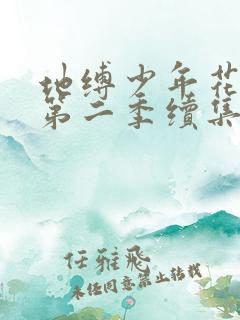 地缚少年花
第二季续集
任雅飛
未经同意禁止转载